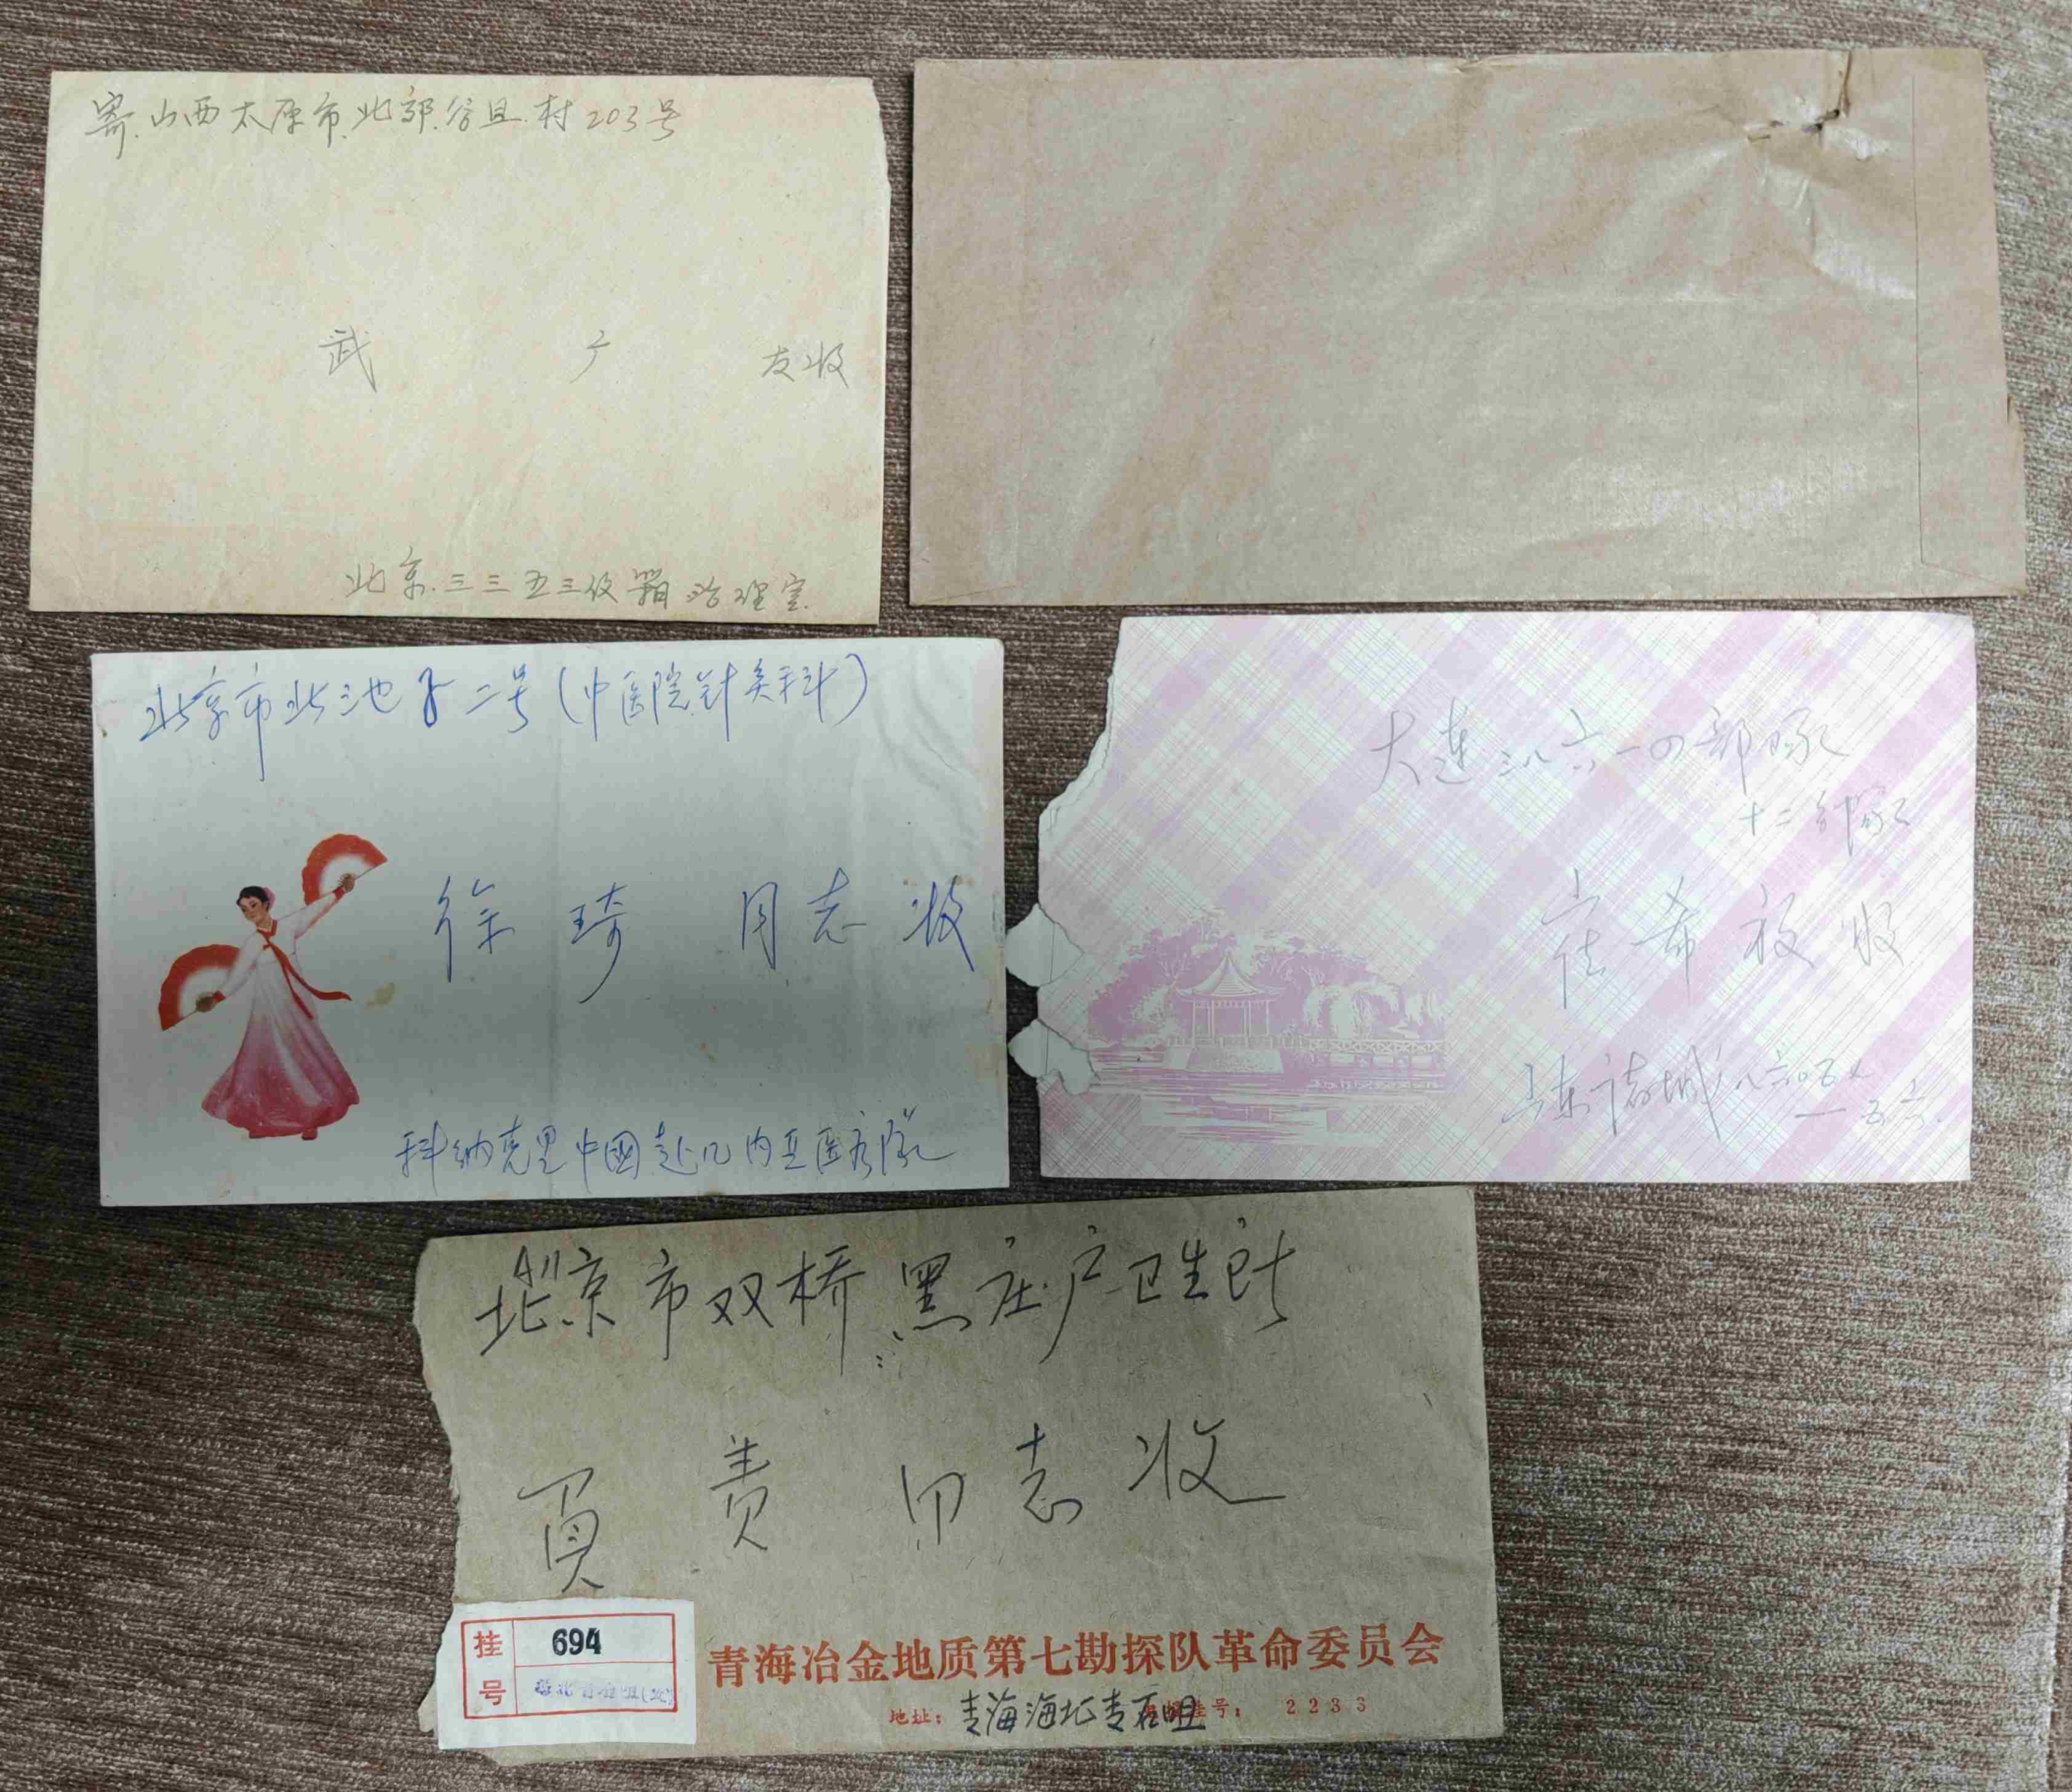 寄.山西太原市.北郊.谷旦.村203号
武广友收
北京.三三五三伩箱治理室.
北京市北池子二号(中医院针灸科)
徐琦 同志收
科纳克里中國赴几内亚医疗队
大连三八六一四部队
十二分队
崔希 收
山东诸城
北京市双桥黑庄户卫生
贾责 同志收
挂号
694
青海冶金地质第七勘探队革命委员会
地址: 青海海北专 挂号: 2233